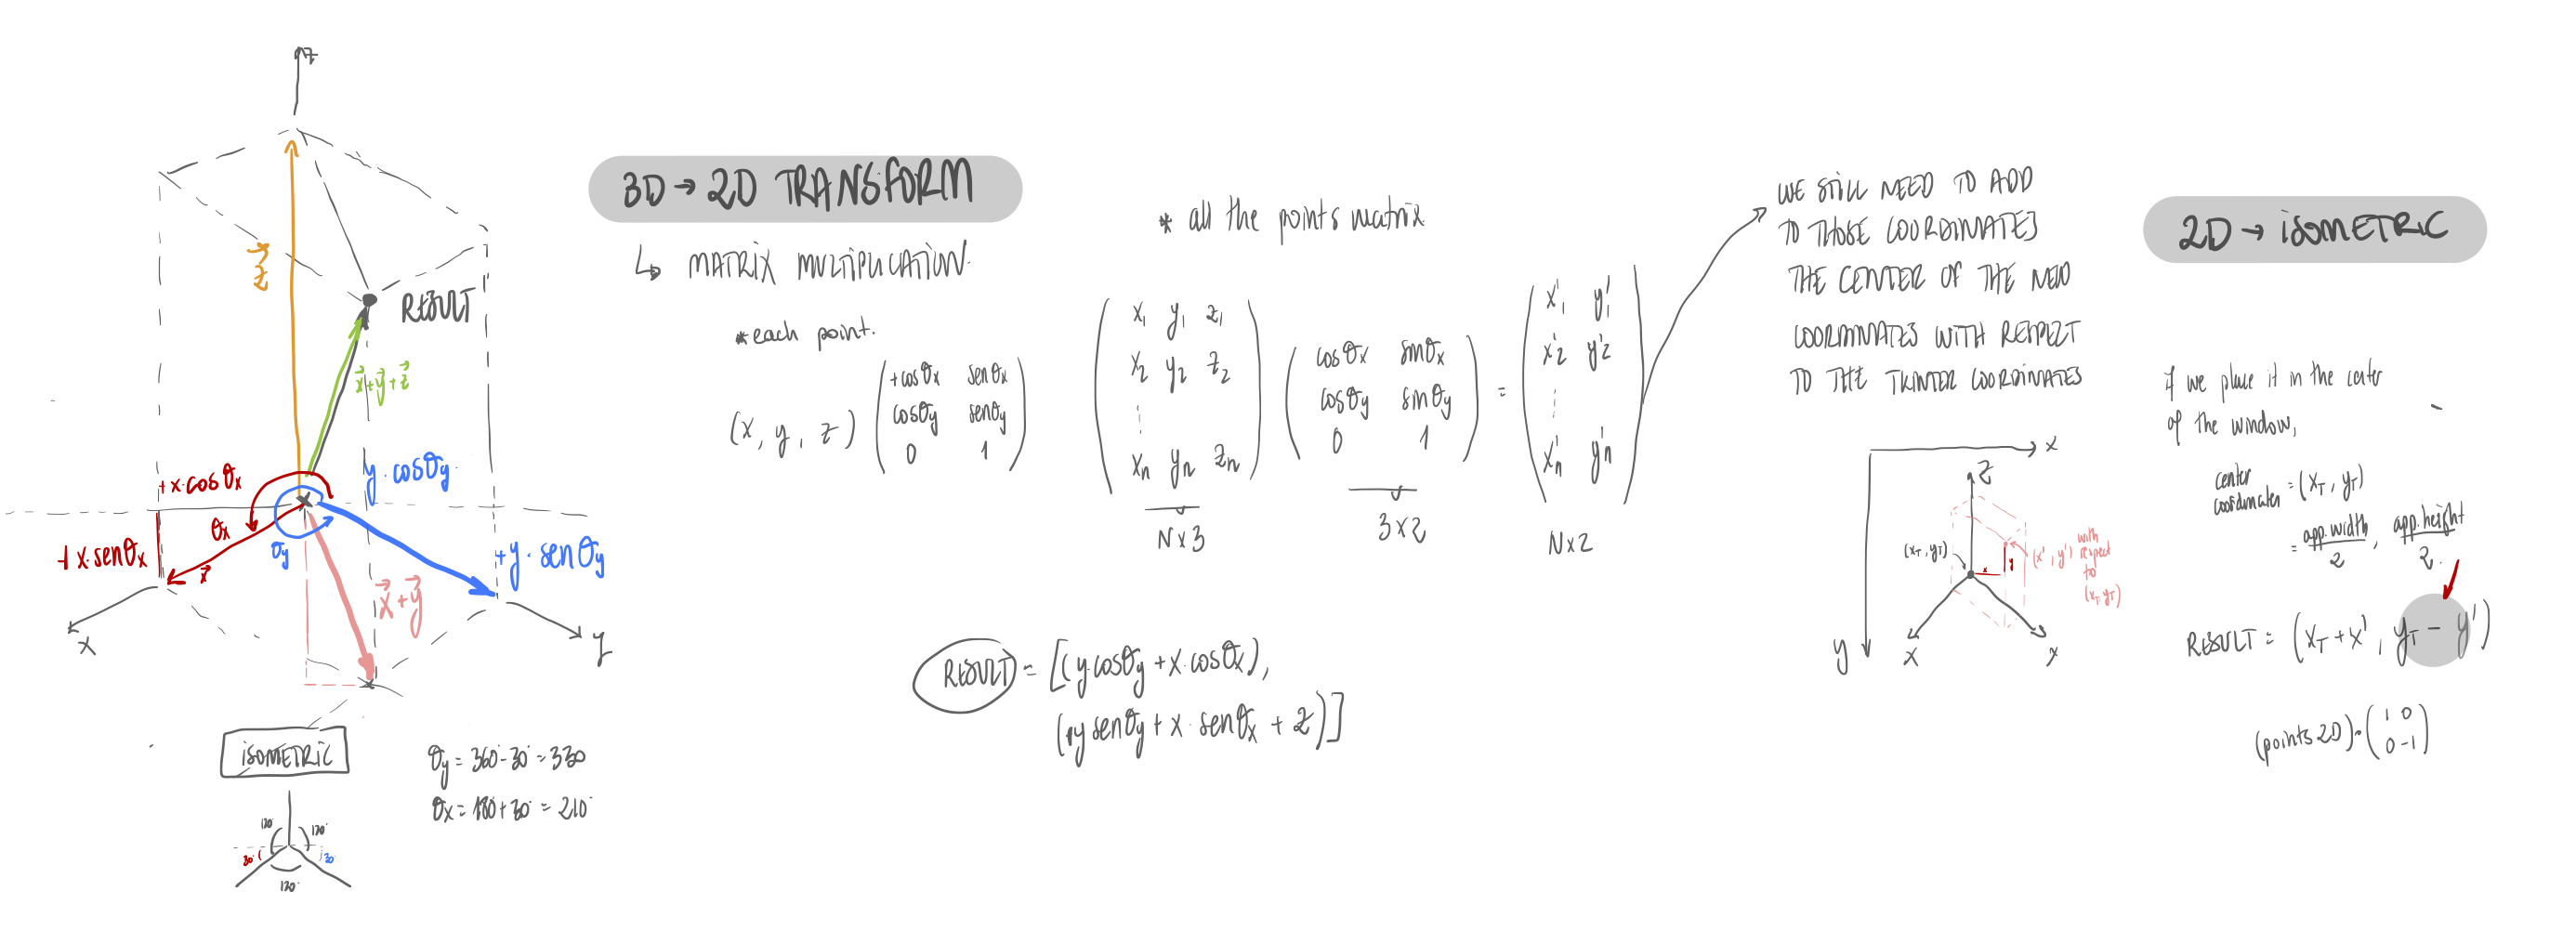 z
z⃗
RESULT
x⃗+y⃗+z⃗
+x·cosθx
y·cosθy
θx
θy
+x·senθx
x⃗
+y·senθy
x⃗+y⃗
x
y
ISOMETRIC
120°
120°
30°
30
120°
θy = 360°-30° = 330
θx = 180°+30° = 210°
3D → 2D TRANSFORM
↳ MATRIX MULTIPLICATION.
* each point.
(x, y, z)
+cosθx senθx
cosθy senθy
0 1
* all the points matrix
x1 y1 z1
x2 y2 z2
⋮
xn yn zn
N x 3
cosθx sinθx
cosθy sinθy
0 1
3 x 2
=
x'1 y'1
x'2 y'2
⋮
x'n y'n
N x 2
RESULT = [(y·cosθy + x·cosθx),
(y senθy + x·senθx + z)]
WE STILL NEED TO ADD
TO THOSE COORDINATES
THE CENTER OF THE NEW
COORDINATES WITH RESPECT
TO THE TKINTER COORDINATES
x
z
(xT, yT)
x
y
(x', y') with
respect
to
(xT, yT)
y
x
y
2D → ISOMETRIC
if we place it in the center
of the window,
center
coordinates = (xT, yT)
= app.width/2, app.height/2.
RESULT = (xT + x', yT - y')
(points 2D)·
1 0
0 -1